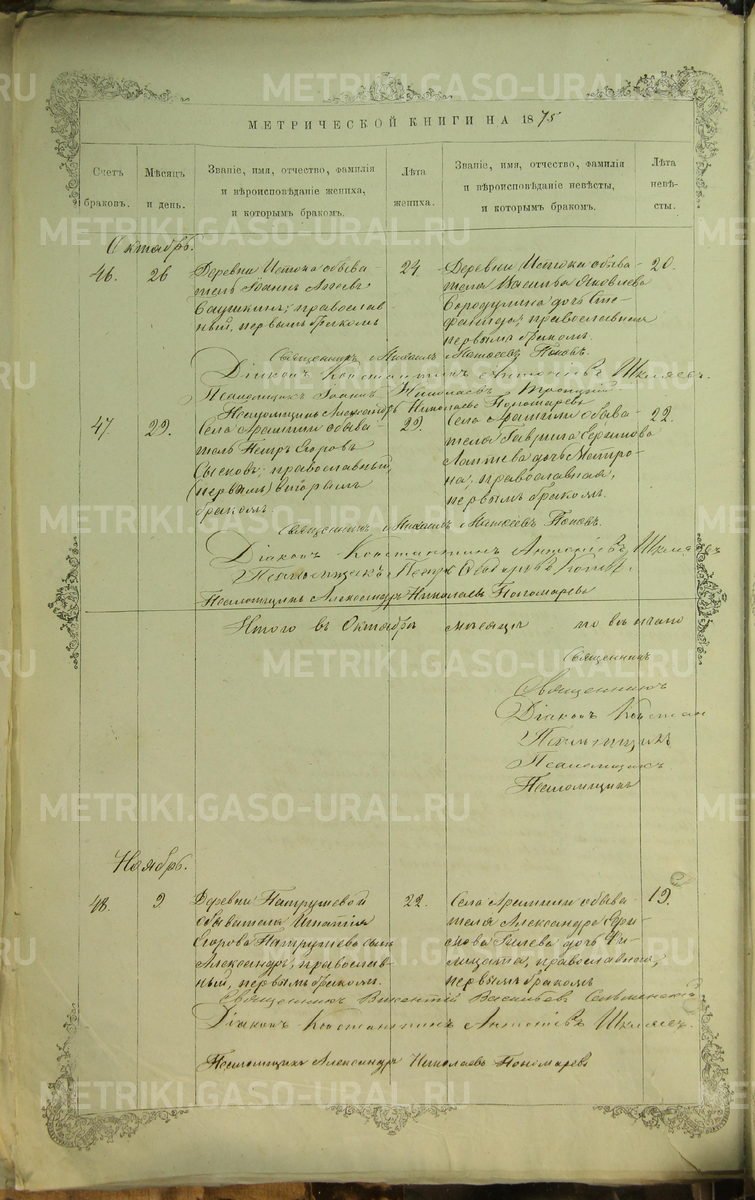 МЕТРИЧЕСКОЙ КНИГИ НА 1875
Счетъ браковъ.
Мѣсяцъ и день.
Званіе, имя, отчество, фамилія
и вѣроисповѣданіе жениха,
и которымъ бракомъ.
Лѣта жениха.
Званіе, имя, отчество, фамилія
и вѣроисповѣданіе невѣсты,
и которымъ бракомъ.
Лѣта невѣсты.
Октябрь.
46.
26
Деревни Истока обыва
тель Іоаннъ
Саушкинъ, православ
ный, первымъ бракомъ
24
Деревни Истока обыва-
теля Василья Яковлева
Бородулина дочь Сте-
фанида, православная
первымъ бракомъ.
20.
Священникъ Михаилъ Матѳеевъ Поповъ.
Діаконъ Константинъ Антоніевъ Шкляевъ.
Псаломщикъ Іоаннъ Николаевъ Троицкій
Псаломщикъ Александръ Николаевъ Пономаревъ
47.
29.
Села Арамили обыва
тель Петръ Егоровъ
Сысковъ, православный,
(первымъ) вторымъ
бракомъ
29.
Села Арамили обыва-
теля Гавріила Ефимова
Лаптева дочь Матро-
на, православная,
первымъ бракомъ.
22.
Священникъ Михаилъ Матѳеевъ Поповъ.
Діаконъ Константинъ Антоніевъ Шкляевъ
Псаломщикъ Петръ Поповъ.
Псаломщикъ Александръ Николаевъ Пономаревъ
Итого въ Октябрѣ мѣсяцѣ повѣнчано
Священникъ
Священникъ
Діаконъ Констан
Псаломщикъ
Псаломщикъ
Псаломщикъ
Ноябрь.
48.
9
Деревни Патрушевой
обывателя Игнатія
Егорова Патрушева сынъ
Александръ, православ-
ный, первымъ бракомъ.
22.
Села Арамили обыва-
теля Александра
Гилева дочь
православная,
первымъ бракомъ
19.
Священникъ Викентій Васильевъ Сельменскій
Діаконъ Константинъ Антоніевъ Шкляевъ.
Псаломщикъ Александръ Николаевъ Пономаревъ
METRIKI.GASO-URAL.RU